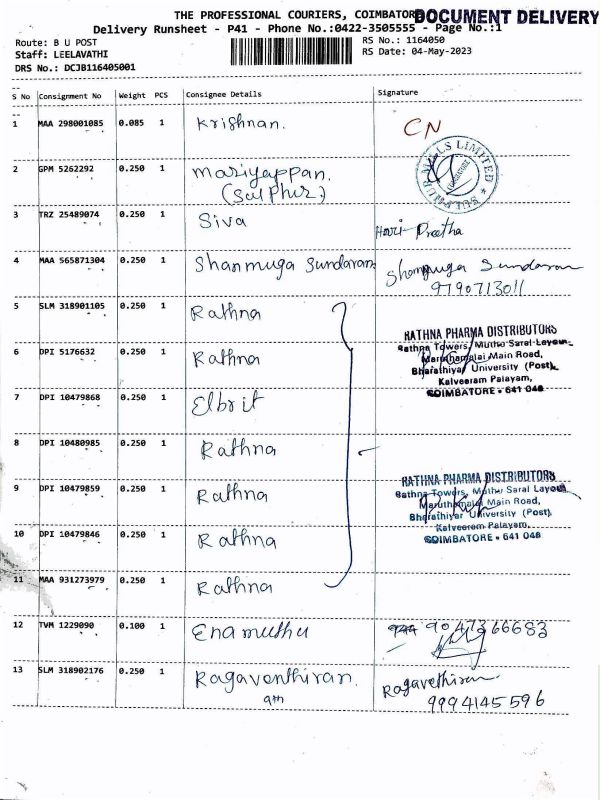 THE PROFESSIONAL COURIERS, COIMBATOR
DOCUMENT DELIVERY
Delivery Runsheet - P41 - Phone No.:0422-3505555 - Page No.:1
Route: B U POST
RS No.: 1164050
Staff: LEELAVATHI
RS Date: 04-May-2023
DRS No.: DCJB116405001
S No Consignment No Weight PCS Consignee Details Signature
1 MAA 298001085 0.085 1 Krishnan. CN
2 GPM 5262292 0.250 1 Mariyappan.
(Sulphur)
SULPHUR MILLS LIMITED
COIMBATORE
3 TRZ 25489074 0.250 1 Siva Hari-Preetha
4 MAA 565871304 0.250 1 Shanmuga Sundaram Shanmuga Sundaram
9790713011
5 SLM 318901105 0.250 1 Rathna
RATHNA PHARMA DISTRIBUTORS
Rathna Towers, Muthu Saral Layout,
6 DPI 5176632 0.250 1 Rathna Maruthamalai Main Road,
Bharathiyar University (Post),
Kalveeram Palayam,
COIMBATORE - 641 046
7 DPI 10479868 0.250 1 Elbrit
8 DPI 10480985 0.250 1 Rathna
RATHNA PHARMA DISTRIBUTORS
9 DPI 10479859 0.250 1 Rathna Rathna Towers, Muthu Saral Layout
Maruthamalai Main Road,
Bharathiyar University (Post),
Kalveeram Palayam,
COIMBATORE - 641 046
10 DPI 10479846 0.250 1 Rathna
11 MAA 931273979 0.250 1 Rathna
12 TVM 1229090 0.100 1 Enamuthu 9047366683
13 SLM 318902176 0.250 1 Ragaventhiran. Ragavethiran
9th 9994145596